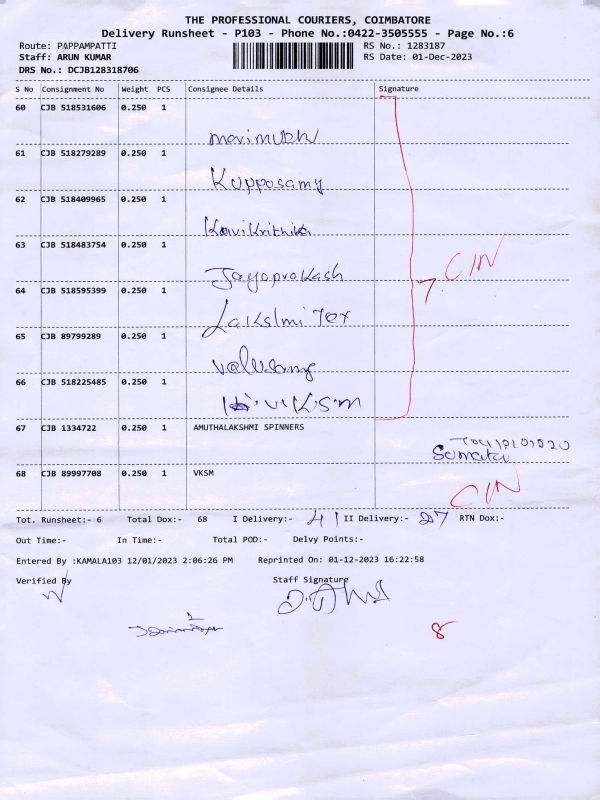 THE PROFESSIONAL COURIERS, COIMBATORE
Delivery Runsheet - P103 - Phone No.:0422-3505555 - Page No.:6
Route: PAPPAMPATTI RS No.: 1283187
Staff: ARUN KUMAR RS Date: 01-Dec-2023
DRS No.: DCJB128318706
S No Consignment No Weight PCS Consignee Details Signature
60 CJB 518531606 0.250 1
61 CJB 518279289 0.250 1
Kupposamy
62 CJB 518409965 0.250 1
Kavikrithika
63 CJB 518483754 0.250 1
Jayaprakash
7. CIN
64 CJB 518595399 0.250 1
Lakslmi Tex
65 CJB 89799289 0.250 1
Velusamy
66 CJB 518225485 0.250 1
V.K.S.M
67 CJB 1334722 0.250 1 AMUTHALAKSHMI SPINNERS
68 CJB 89997708 0.250 1 VKSM
CIN
Tot. Runsheet:- 6 Total Dox:- 68 I Delivery:- 41 II Delivery:- 27 RTN Dox:-
Out Time:- In Time:- Total POD:- Delvy Points:-
Entered By :KAMALA103 12/01/2023 2:06:26 PM Reprinted On: 01-12-2023 16:22:58
Verified By Staff Signature
8